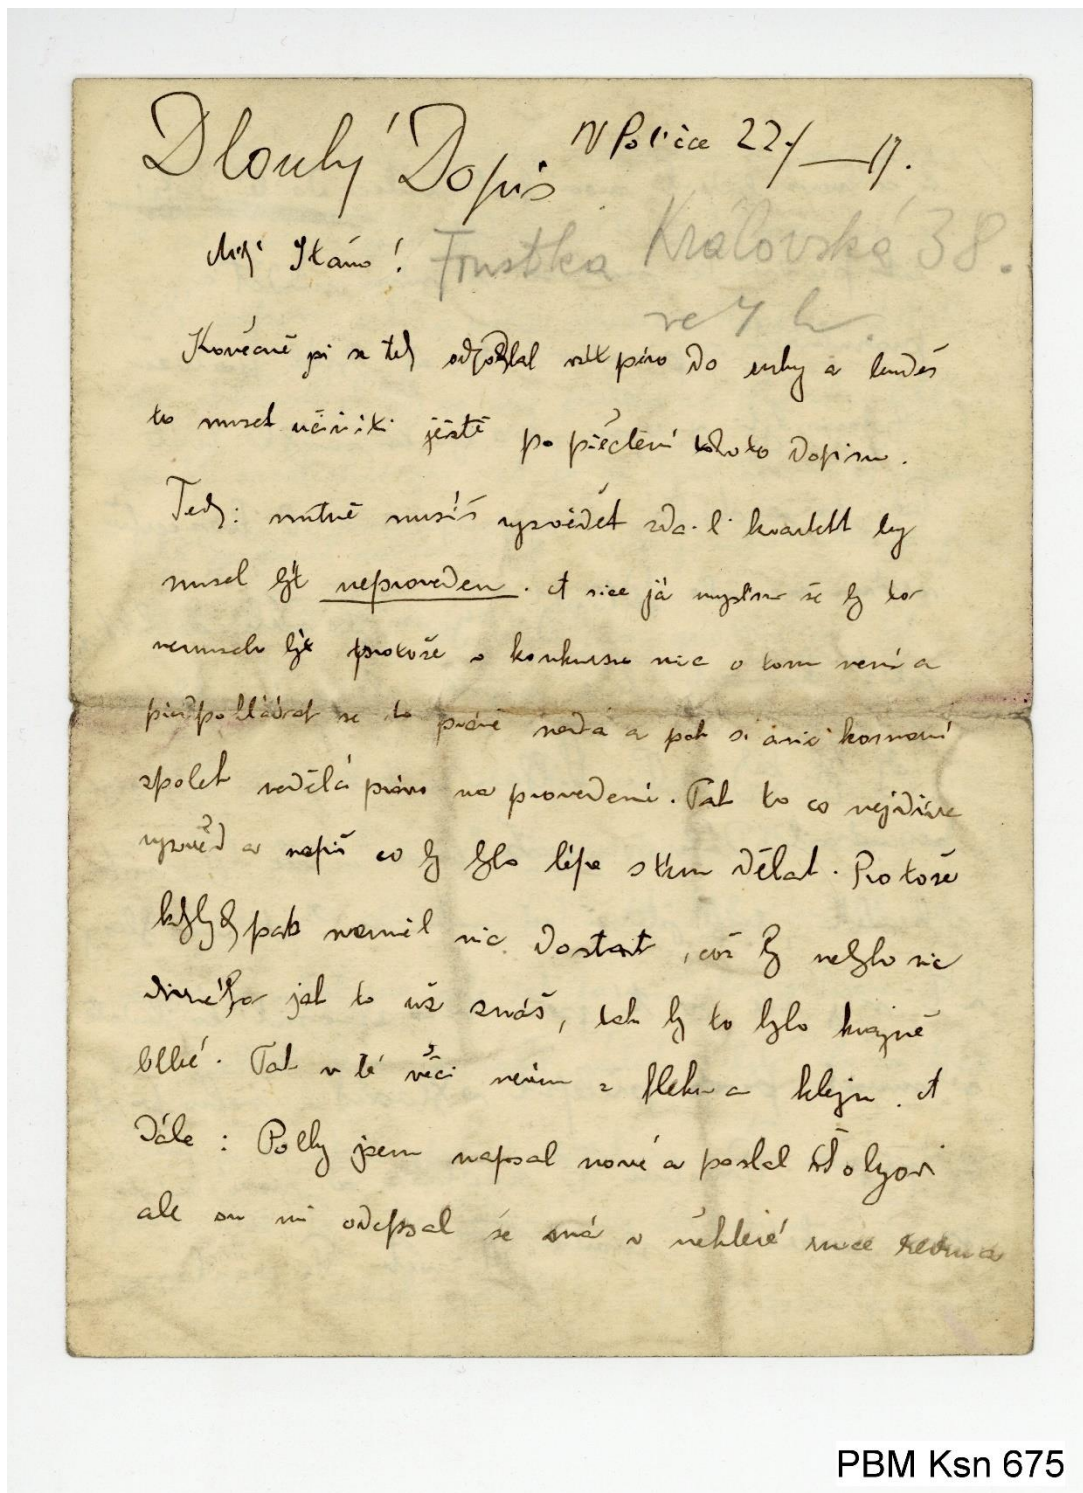 Dlouhý Dopis
V Poličce 22./ 17.
Milý Stáňo!
Královská 38.
ve 4 h.
Konečně jsi se tedy odhodlal vzít péro do ruky a budeš
to muset učiniti ještě po přečtení tohoto Dopisu.
Tedy: nutně musíš vyzvědět zda-li kvartett by
musel být neproveden. A sice já myslím že by to
nemuselo být protože v konkursu nic o tom není a
předpokládat se to právě nedá a pak si ani komorní
spolek nedělá právo na provedení. Tak to co nejdříve
vyzvěď a napiš co by bylo lépe s tím dělat. Protože
kdybych pak neměl nic dostat, což by nebylo nic
divného jak to už znáš, tak by to bylo hrozně
blbé. Tak v té věci nevím z fleku a kleju. A
Dále: Polky jsem napsal nové a poslal Štolzovi
ale on mi odepsal že má v některé